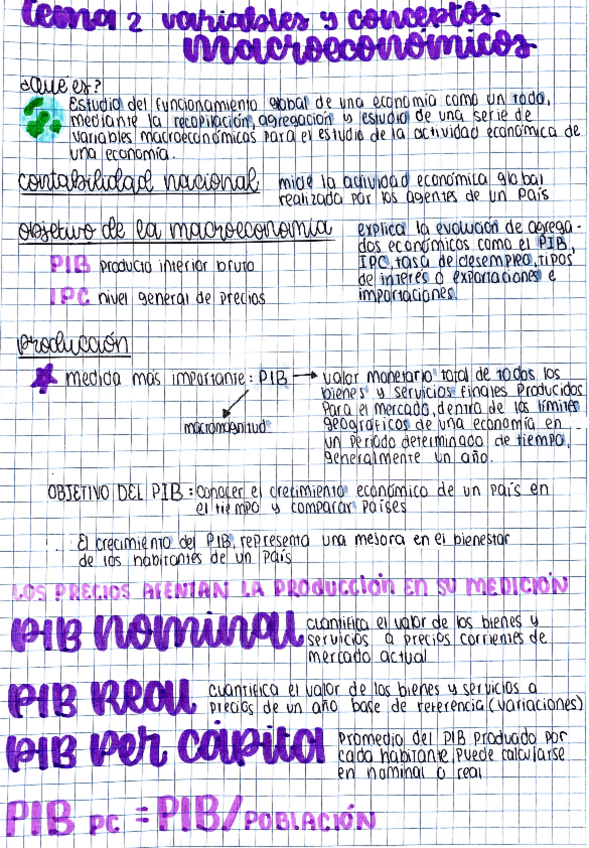 tema 2 variables y conceptos
macroeconómicos
¿Qué es?
Estudio del funcionamiento global de una economía como un todo,
mediante la recopilación, agregación y estudio de una serie de
variables macroeconómicas para el estudio de la actividad económica de
una economía.
contabilidad nacional mide la actividad económica global
realizada por los agentes de un país
objetivo de la macroeconomía explica la evolución de agrega-
dos económicos como el PIB,
IPC, tasa de desempleo, tipos
de interés o exportaciones e
importaciones.
PIB producto interior bruto
IPC nivel general de precios
producción
medida más importante: PIB → valor monetario total de todos los
bienes y servicios finales producidos
para el mercado, dentro de los límites
geográficos de una economía en
un periodo determinado de tiempo,
generalmente un año.
macromagnitud
OBJETIVO DEL PIB: conocer el crecimiento económico de un país en
el tiempo y comparar países
El crecimiento del PIB, representa una mejora en el bienestar
de los habitantes de un país
LOS PRECIOS AFENTAN LA PRODUCCIÓN EN SU MEDICIÓN
PIB nominal cuantifica el valor de los bienes y
servicios a precios corrientes de
mercado actual
PIB Real cuantifica el valor de los bienes y servicios a
precios de un año base de referencia (variaciones)
PIB per cápita promedio del PIB producido por
cada habitante, puede calcularse
en nominal o real
PIB pc = PIB/POBLACIÓN